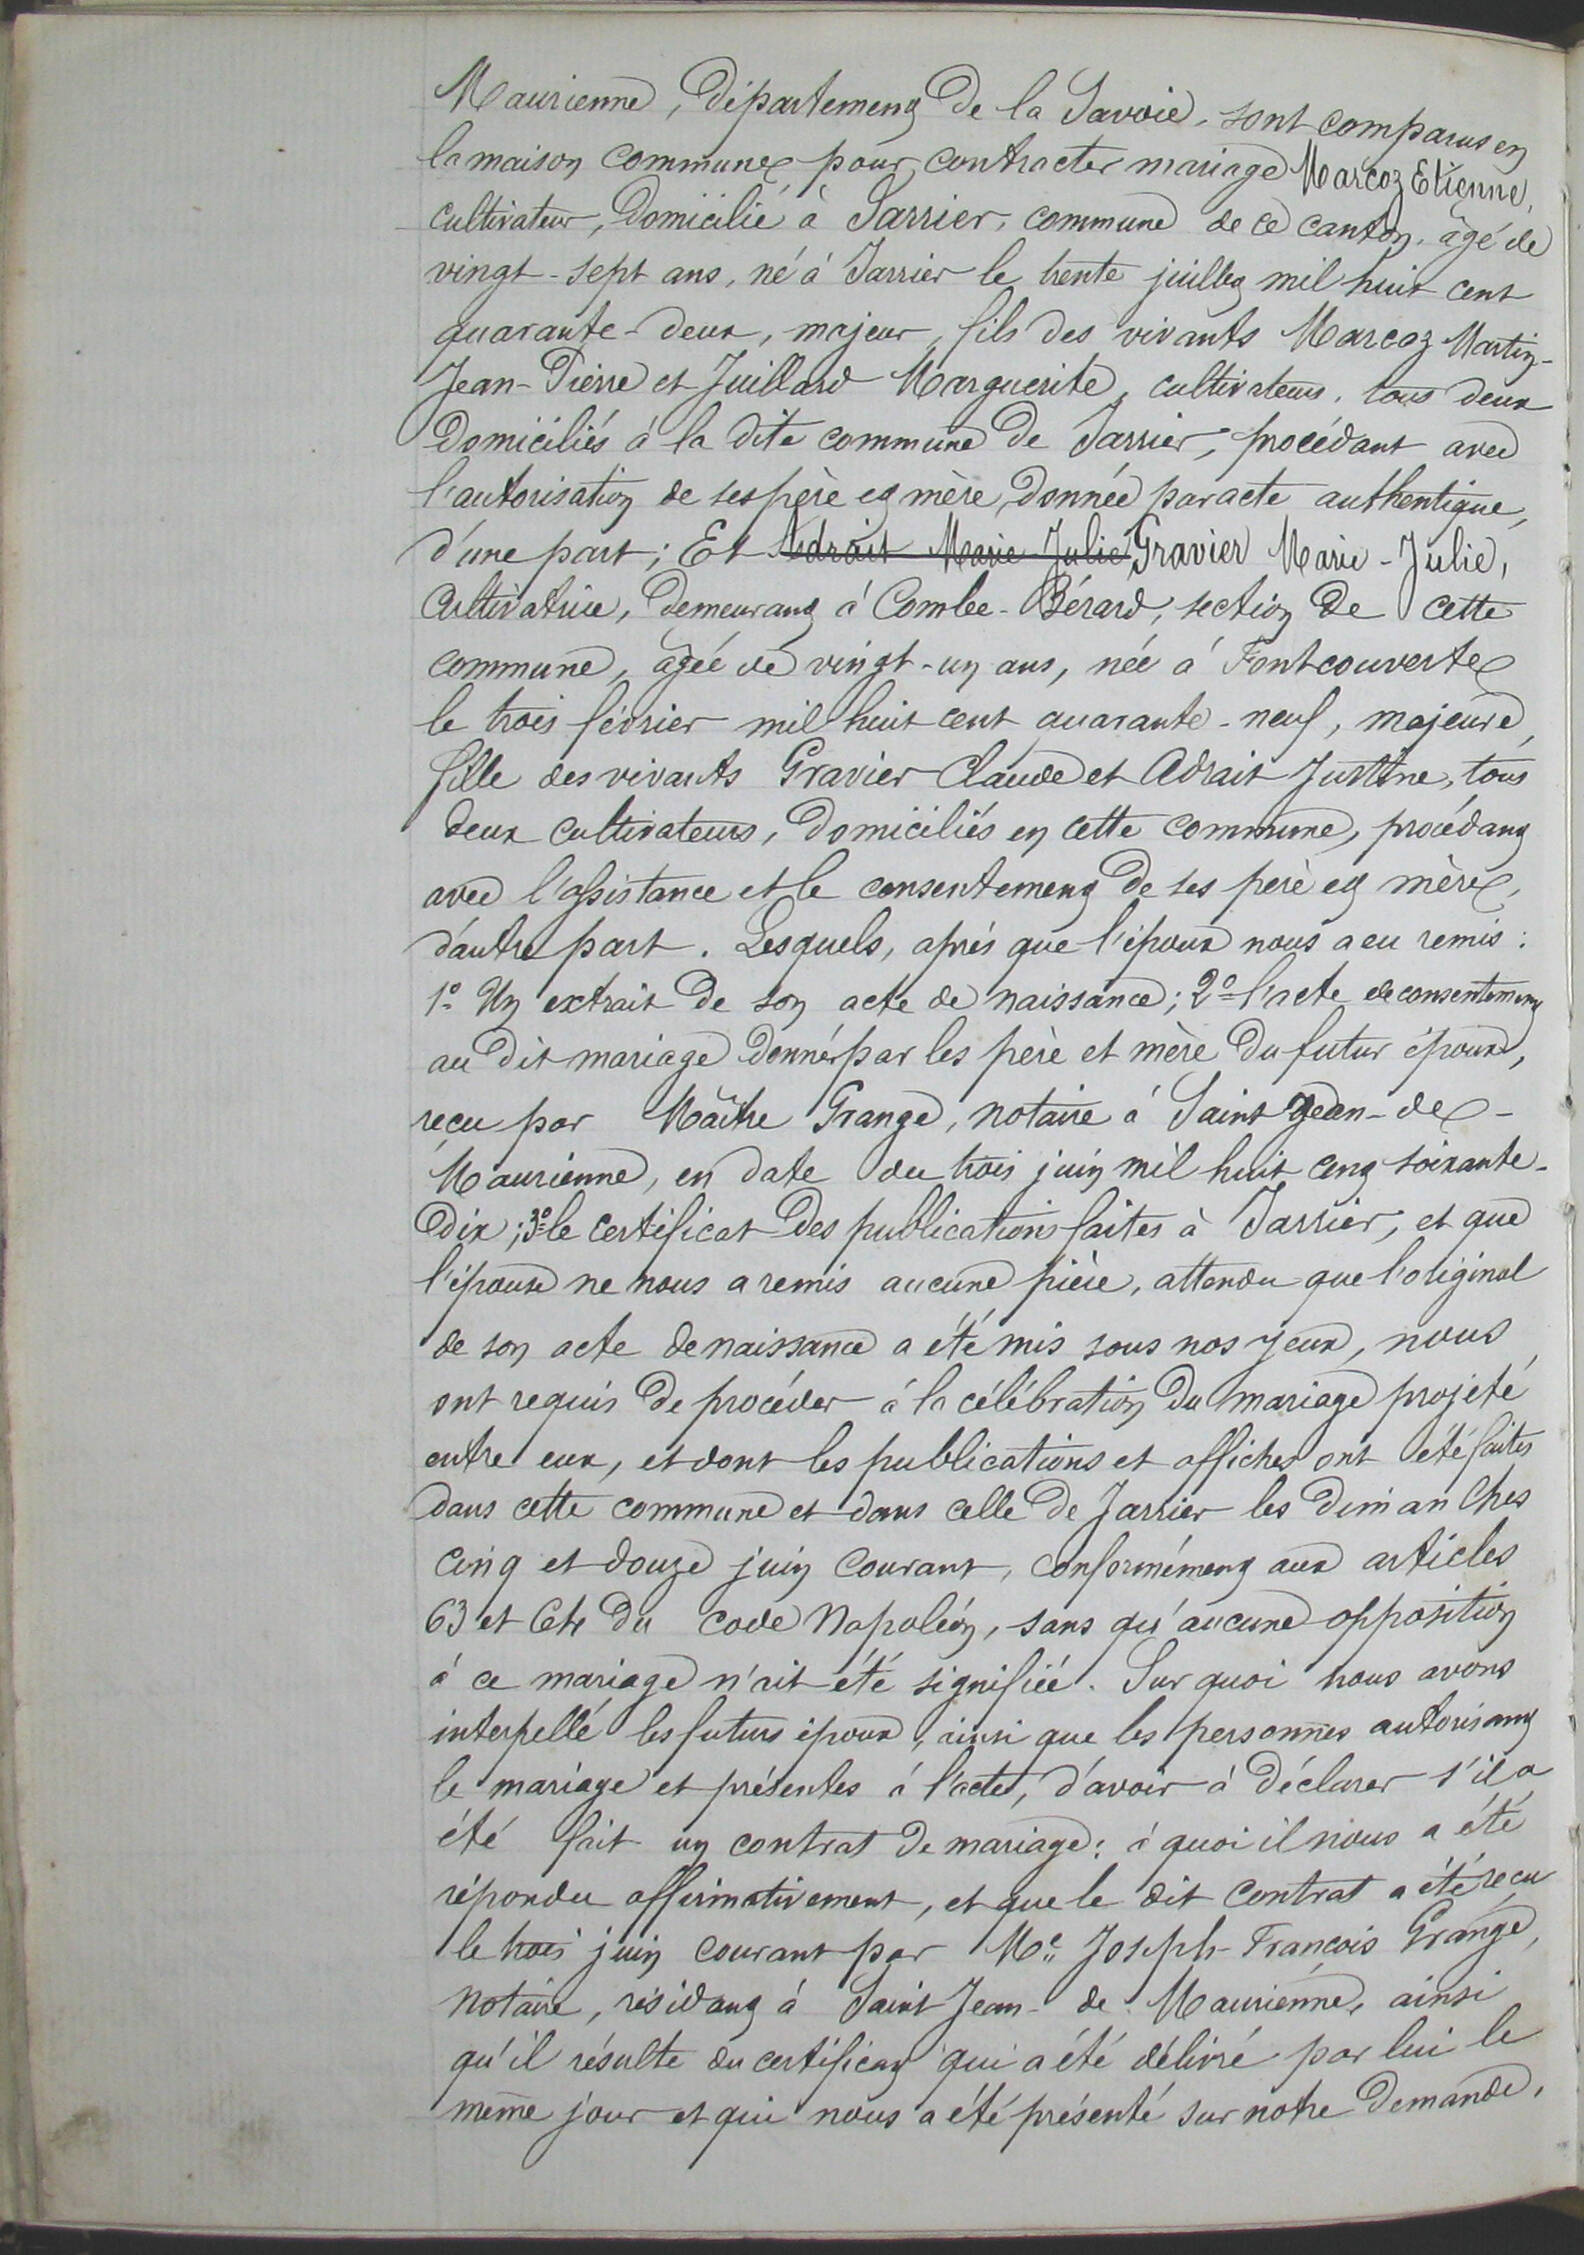 Maurienne, département de la Savoie, sont comparus en
la maison commune pour contracter mariage Marcoz Etienne,
cultivateur, domicilié à Jarrier, commune de ce canton, âgé de
vingt-sept ans, né à Jarrier le trente juillet mil huit cent
quarante-deux, majeur, fils des vivants Marcoz Martin-
Jean-Pierre et Juillard Marguerite, cultivateurs, tous deux
domiciliés à la dite commune de Jarrier, procédant avec
l'autorisation de ses père et mère, donnée par acte authentique,
d'une part ; Et Adrait Marie-Julie Gravier Marie-Julie,
cultivatrice, demeurant à Combe-Bérard, section de cette
commune, âgée de vingt-un ans, née à Fontcouverte
le trois février mil huit cent quarante-neuf, majeure,
fille des vivants Gravier Claude et Adrait Justine, tous
deux cultivateurs, domiciliés en cette commune, procédant
avec l'assistance et le consentement de ses père et mère,
d'autre part. Lesquels, après que l'époux nous a eu remis :
1º Un extrait de son acte de naissance ; 2º l'acte de consentement
au dit mariage donné par les père et mère du futur époux,
reçu par Maître Grange, notaire à Saint Jean-de-
Maurienne, en date du trois juin mil huit cent soixante-
dix ; 3º le certificat des publications faites à Jarrier, et que
l'épouse ne nous a remis aucune pièce, attendu que l'original
de son acte de naissance a été mis sous nos yeux, nous
ont requis de procéder à la célébration du mariage projeté
entre eux, et dont les publications et affiches ont été faites
dans cette commune et dans celle de Jarrier les dimanches
cinq et douze juin courant, conformément aux articles
63 et 64 du code Napoléon, sans qu'aucune opposition
à ce mariage n'ait été signifiée. Sur quoi nous avons
interpellé les futurs époux, ainsi que les personnes autorisant
le mariage et présentes à l'acte, d'avoir à déclarer s'il a
été fait un contrat de mariage : à quoi il nous a été
répondu affirmativement, et que le dit contrat a été reçu
le trois juin courant par Me Joseph-François Grange,
notaire, résidant à Saint Jean-de Maurienne, ainsi
qu'il résulte du certificat qui a été délivré par lui le
même jour et qui nous a été présenté sur notre demande.